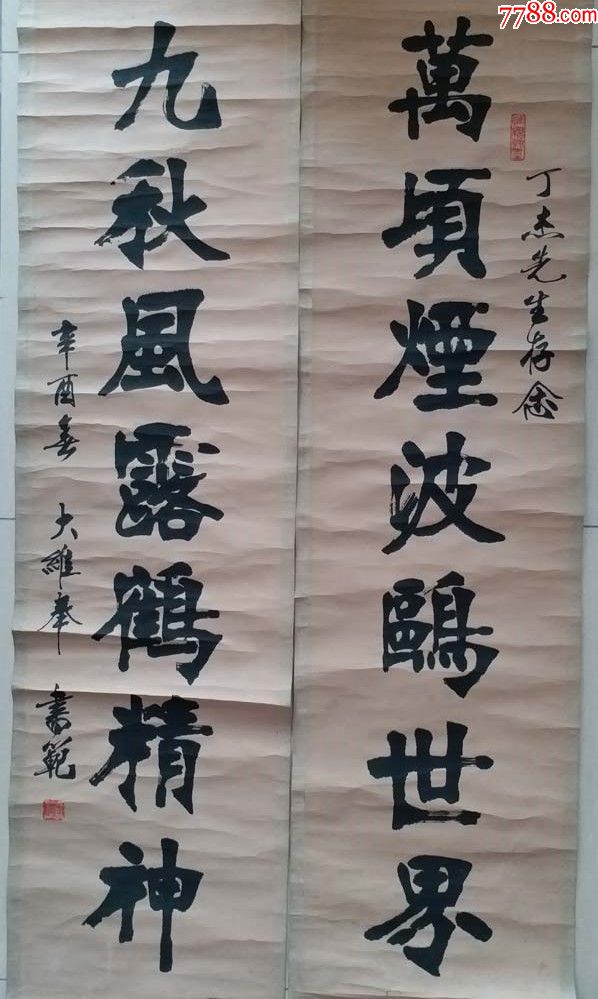 7788.com
萬頃煙波鷗世界
丁杰先生存念
九秋風露鶴精神
辛酉春 大維奉 書範